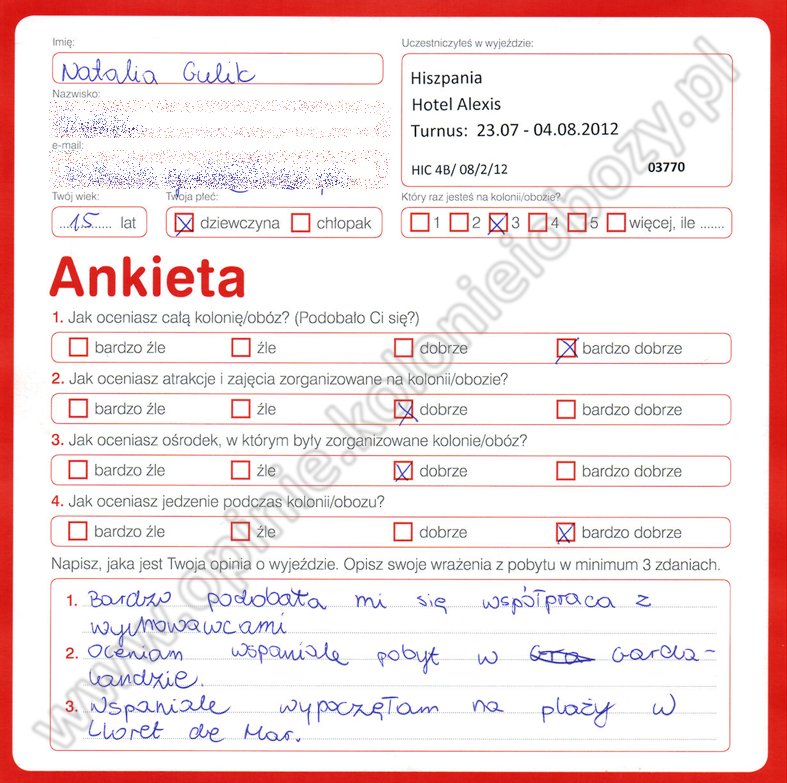 Imię:
Natalia Gulik
Nazwisko:
e-mail:
Twój wiek:
15 lat
Twoja płeć:
dziewczyna chłopak
Uczestniczyłeś w wyjeździe:
Hiszpania
Hotel Alexis
Turnus: 23.07 - 04.08.2012
HIC 4B/ 08/2/12 03770
Który raz jesteś na kolonii/obozie?
1 2 3 4 5 więcej, ile .......
Ankieta
1. Jak oceniasz całą kolonię/obóz? (Podobało Ci się?)
bardzo źle źle dobrze bardzo dobrze
2. Jak oceniasz atrakcje i zajęcia zorganizowane na kolonii/obozie?
bardzo źle źle dobrze bardzo dobrze
3. Jak oceniasz ośrodek, w którym były zorganizowane kolonie/obóz?
bardzo źle źle dobrze bardzo dobrze
4. Jak oceniasz jedzenie podczas kolonii/obozu?
bardzo źle źle dobrze bardzo dobrze
Napisz, jaka jest Twoja opinia o wyjeździe. Opisz swoje wrażenia z pobytu w minimum 3 zdaniach.
1. Bardzo podobała mi się współpraca z
wychowawcami
2. Oceniam wspaniale pobyt w Garda-
landzie.
3. Wspaniale wypoczęłam na plaży w
Lloret de Mar.
www.opinie.kolonieiobozy.pl